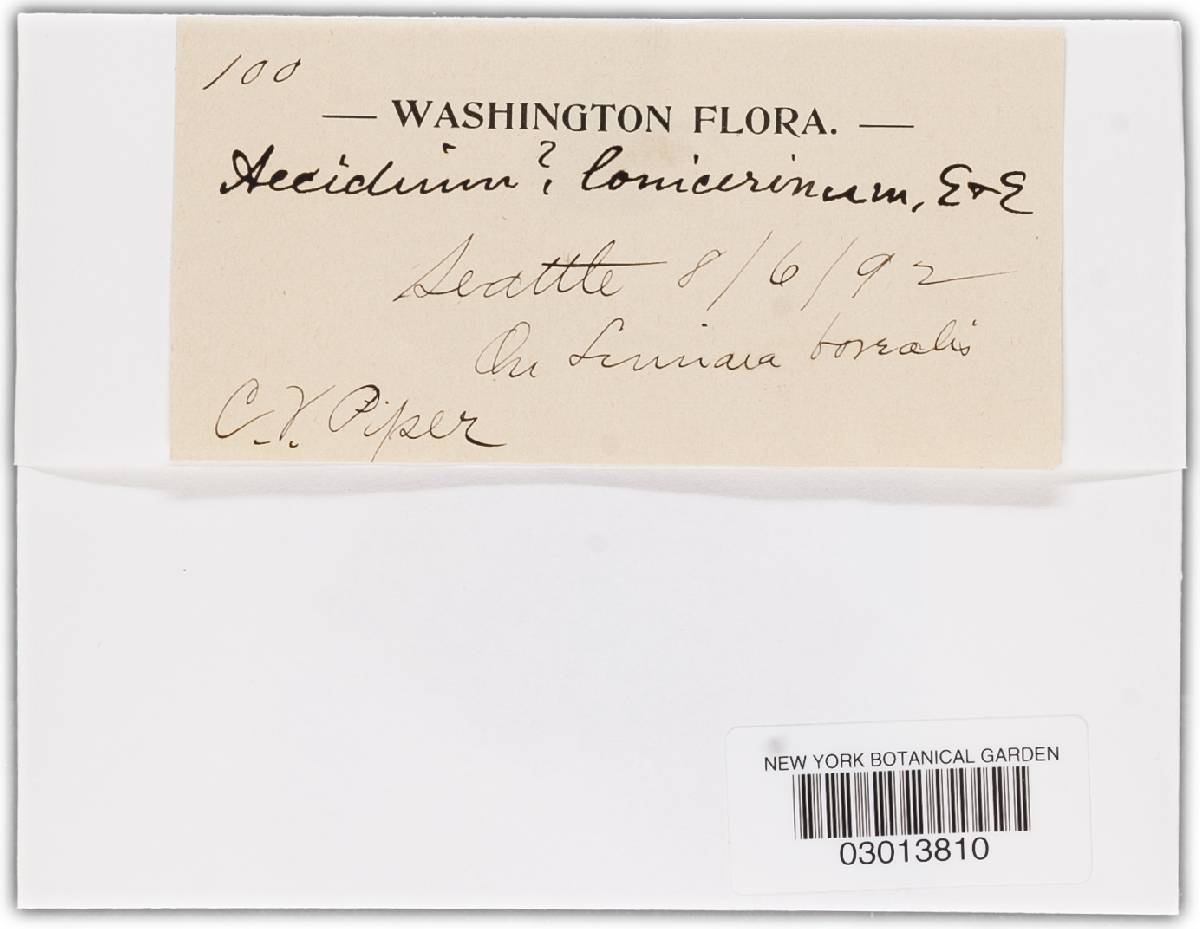 100
— WASHINGTON FLORA. —
Aecidium ?, lonicerinum, E & E
Seattle 8/6/92
On Linnaea borealis
C. V. Piper
NEW YORK BOTANICAL GARDEN
03013810